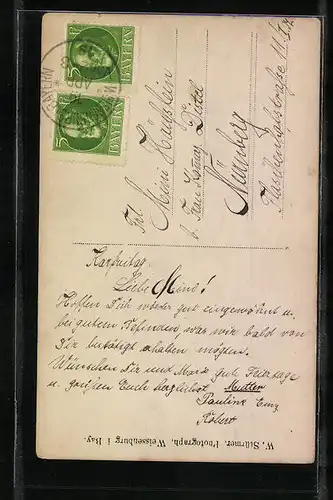 5 BAYERN
5 BAYERN
BAYERN
Frl.
Mini Häußlein
b. Frau König Dittel
Nürnberg
Karfreitag.
Liebe Mina!
Hoffen Dich wieder gut eingewöhnt u.
bei gutem Befinden, was wir bald von
Dir bestätigt erhalten möchten.
Wünschen Dir und Marie gute Feiertage
u. grüßen Euch herzlichst Mutter
Pauline
Robert
W. Stürmer, Photograph, Weissenburg i. Bay.